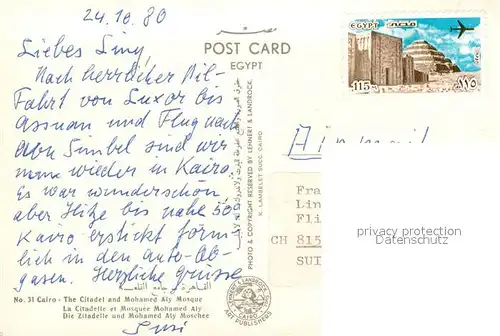 24.10.80
Liebes Liny,
Nach herrlicher Nil-
Fahrt von Luxor bis
Assuan und Flug nach
Abu Simbel sind wir
nun wieder in Kairo.
Es war wunderschön
aber Hitze bis nahe 50°
Kairo erstickt förm-
lich in den Auto-Ab-
gasen. Herzliche Grüsse
Susi
POST CARD
EGYPT
EGYPT مصر
115
١١٥
Air mail
PHOTO & COPYRIGHT RESERVED BY LEHNERT & LANDROCK,
K. LAMBELET SUCC. CAIRO
Fra
Lin
Fli
CH 815
SUI
privacy protection
watermark
القاهرة
No. 31 Cairo - The Citadel and Mohamed Aly Mosque
La Citadelle et Mosquée Mohamed Aly
Die Zitadelle und Mohamed Aly Moschee
LEHNERT & LANDROCK
CAIRO
ART PUBLISHERS